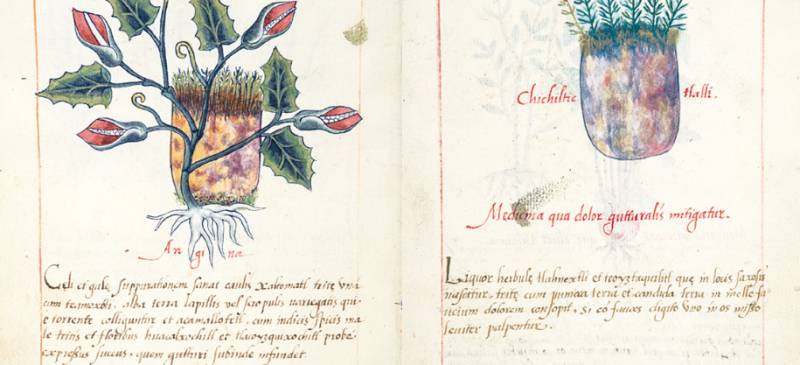 An gi na
et gulę suppurationem sanat caulis trite vna
cum teamoxtli, alba terra lapillis vel scrupulis variegatis qui
e torrente colliguntur et acamallotetl, cum indicis spicis ma
le tritis et floribus huacalxochitl et tlacoyzquixochitl probe
expressus succus, quem gutturi subinde infundet.
Chichiltic tlalli.
Medicina qua dolor gutturalis mitigatur.
Liquor herbulę tlahnextli et teoyztaquilitl que in locis saxosis
nascitur, tritę cum terra et candida terra in melle fa
ucium dolorem consopit, si eo fauces digito vno in os misso
leniter palpentur.